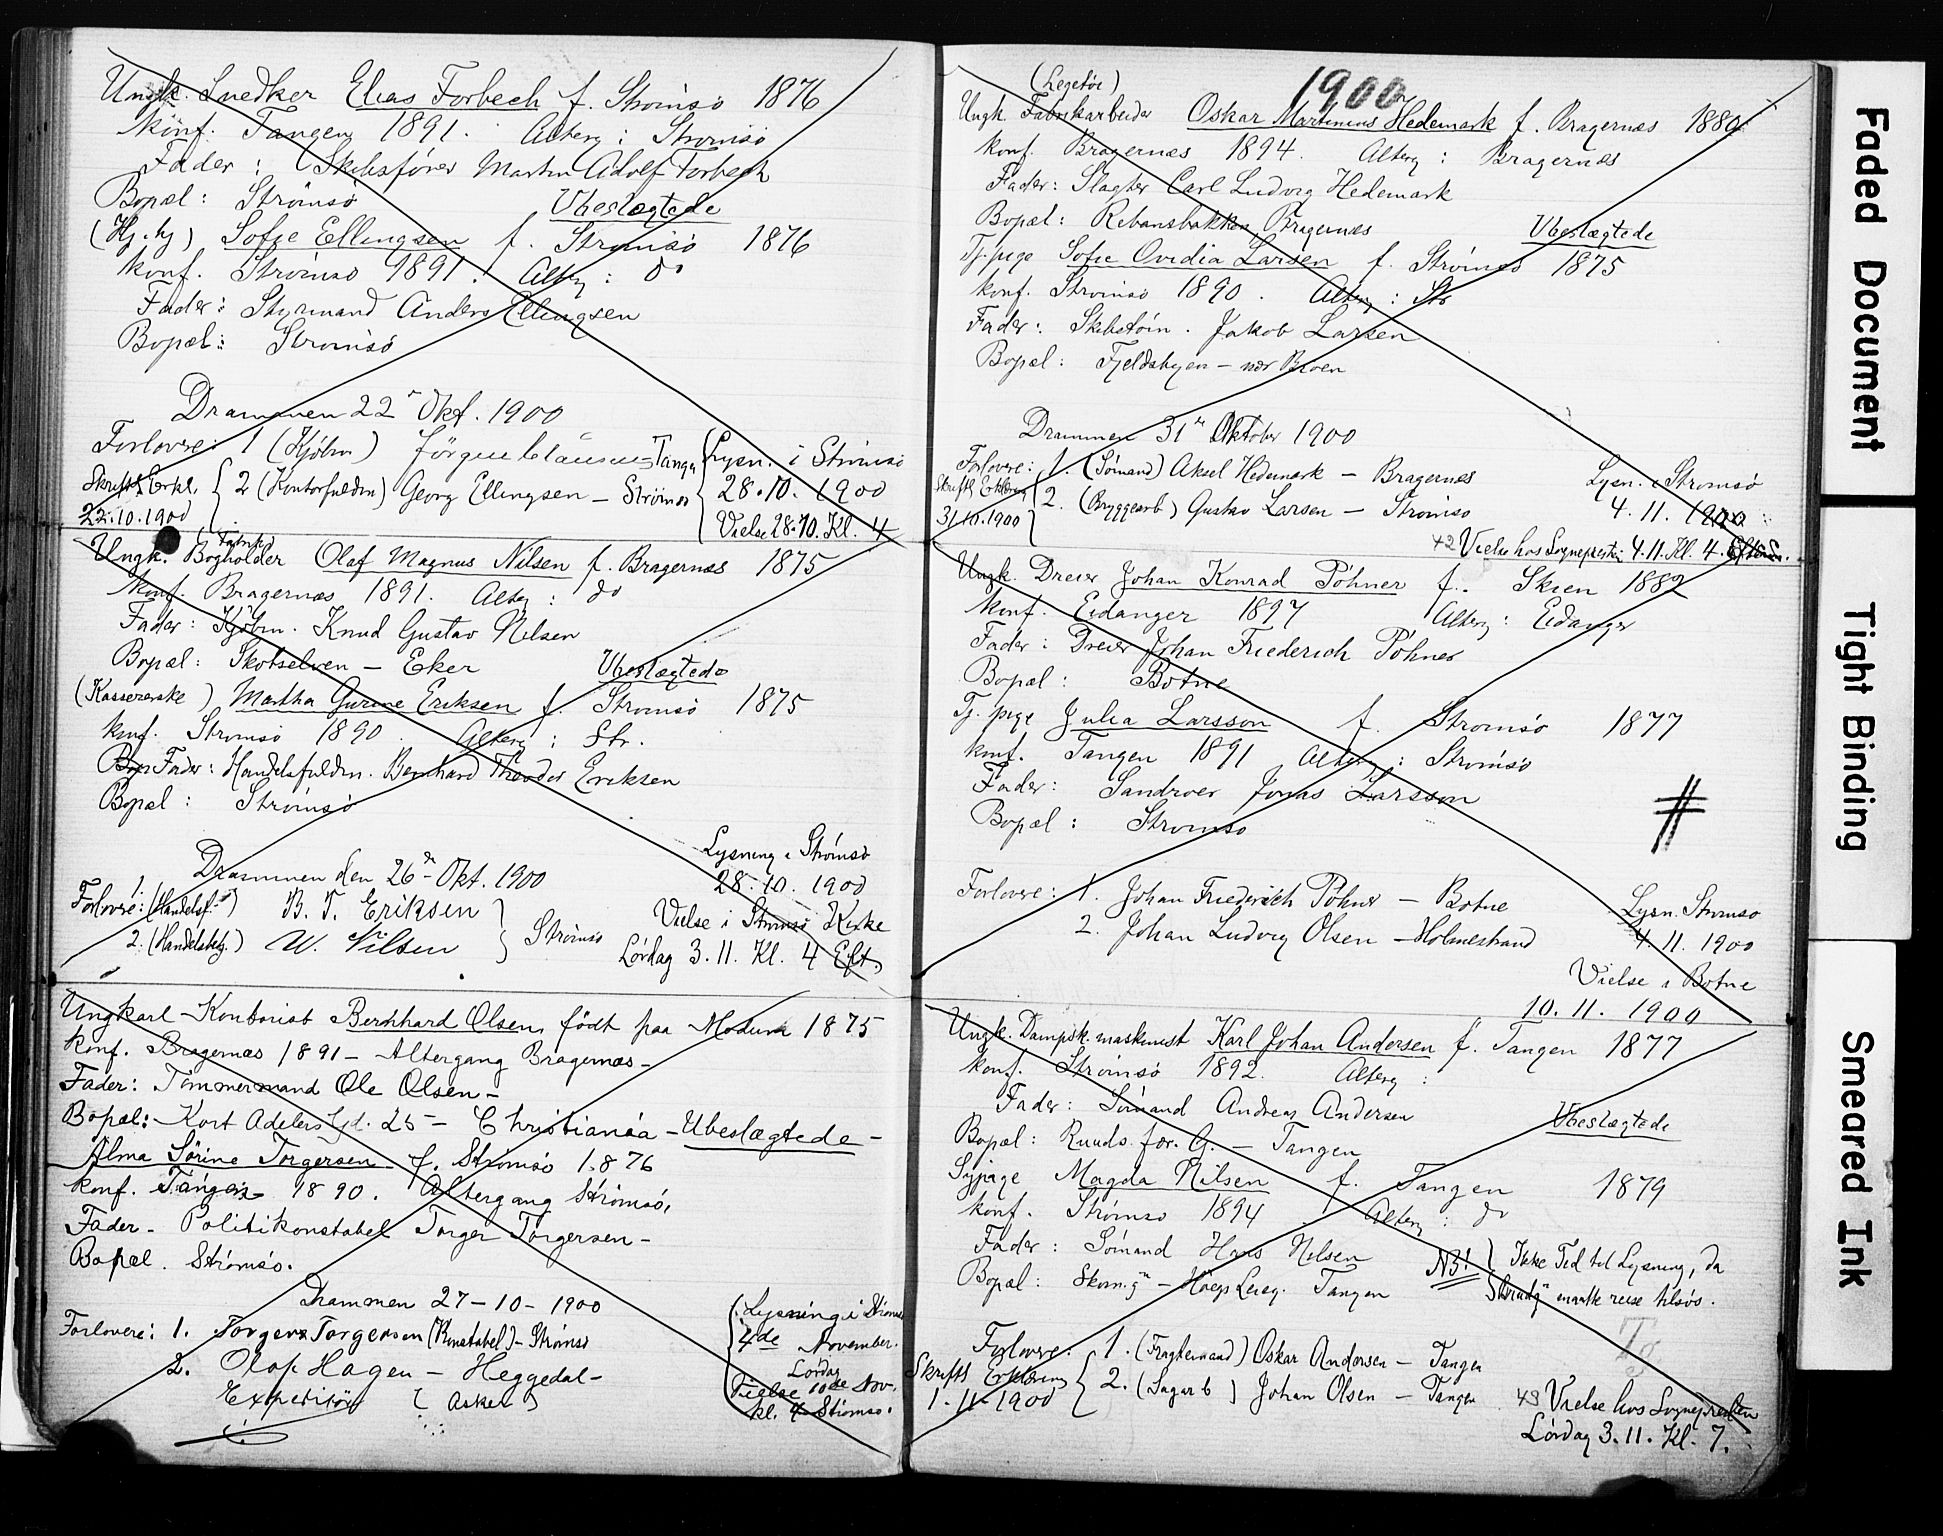 Ungk. Snedker Elias Forbech f. Strömsö 1876
konf. Tangen 1891. Alterg: Strömsö
Fader: Skibsförer Martin Adolf Forbech
Bopæl: Strömsö Ubeslægtede
(Hj. hj) Sofie Ellingsen f. Strömsö 1876
konf. Strömsö 1891. Alterg: do
Fader: Styrmand Anders Ellingsen
Bopæl: Strömsö
Drammen 22 Okt. 1900
Forlovere: 1 (Kjöbm) Jörgen Clausen Tangen
Skriftl. Erkl. 2 (Kontorfuldm) Georg Ellingsen – Strömsö
22.10.1900
Lysn. i Strömsö
28.10.1900
Vielse 28.10. Kl. 4
Fabrik
Ungk. Bogholder Olaf Magnus Nilsen f. Bragernæs 1875
Konf. Bragernæs 1891. Alterg: do
Fader: Kjöbm. Knud Gustav Nilsen
Bopæl: Skotselven – Eker Ubeslægtede
(Kassererske) Martha Gurine Eriksen f. Strömsö 1875
konf. Strömsö 1890. Alterg: Str.
Bop Fader: Handelsfuldm. Bernhard Theodor Eriksen
Bopæl: Strömsö
Drammen den 26de Okt. 1900
Lysning i Strömsö
28.10.1900
Forlovere: 1. (Handelsf.) B. T. Eriksen
2. (Handelsbetj.) W. Nilsen } Strömsö
Vielse i Strømsø Kirke
Lördag 3.11. Kl. 4 Eft.
Ungkarl Kontorist Bernhard Olsen, født paa Modum 1875
konf. Bragernæs 1891 – Altergang Bragernæs –
Fader: Tömmermand Ole Olsen –
Bopæl: Kort Adelers Gd. 25 – Christiania – Ubeslægtede –
Alma Sörine Torgersen f. Strömsö 1876
konf. Tangen 1890. Altergang Strömsö,
Fader – Politikonstabel Torger Torgersen –
Bopæl. Strömsö.
Drammen 27–10–1900
Forlovere: 1. Torger Torgersen (Konstabel) – Strömsö
2. Olaf Hagen – Heggedal –
Expeditör (Asker)
Lysning i Strömsö
4de November.
Lördag
Vielse 10de Nov.
kl. 4 Strömsö.
1900
(Legetöi)
Ungk. Fabrikarbeider Oskar Martinius Hedemark f. Bragernæs 1880
konf. Bragernæs 1894. Alterg: Bragernæs
Fader: Slagter Carl Ludvig Hedemark
Bopæl: Rebansbakken Bragernæs Ubeslægtede
Tj. pige Sofie Ovidia Larsen f. Strömsö 1875
konf. Strömsö 1890. Alterg: Str
Fader: Skibstöm. Jakob Larsen
Bopæl: Fjeldsbyen – nær Broen
Drammen 31te Oktober 1900
Forlovere: 1. (Sömand) Aksel Hedemark – Bragernæs
Skriftl. Erklæring 2. (Bryggearb) Gustav Larsen – Strömsö
31.10.1900
Lysn. i Strömsö
4.11.1900
42 Vielse hos Sognepresten 4.11. Kl. 4.
Ungk. Dreier Johan Konrad Pöhner f. Skien 1882
konf. Eidanger 1897 Alterg: Eidanger
Fader: Dreier Johan Friederich Pöhner
Bopæl: Botne
Tj. pige Julia Larsson f. Strömsö 1877
konf. Tangen 1891 Alterg: Strömsö
Fader: Sandroer Jonas Larsson
Bopæl: Strömsö
#
Forlovere: 1. Johan Friederich Pöhner – Botne
2. Johan Ludvig Olsen – Holmestrand
Lysn. Strömsö
4.11.1900
Vielse i Botne
10.11.1900
Ungk. Dampsk. maskinist Karl Johan Andersen f. Tangen 1877
konf. Strömsö 1892. Alterg:
Fader: Sömand Andreas Andersen
Bopæl: Ruuds. for. G. – Tangen Ubeslægtede
Sypige Magda Nilsen f. Tangen 1879
konf. Strömsö 1894. Alterg: do
Fader: Sömand Hans Nilsen
Bopæl: Skom. g – Tangen
NB! Ikke Tid til Lysning, da
maatte reise tilsös.
Tg
Forlovere: 1. (Fragtemand) Oskar Andersen – Tangen
Skriftl. Erklæring 2. (Sagarb) Johan Olsen – Tangen
1.11.1900
43 Vielse hos Sognepresten
Lördag 3.11. Kl. 7.
Faded Document
Tight Binding
Smeared Ink